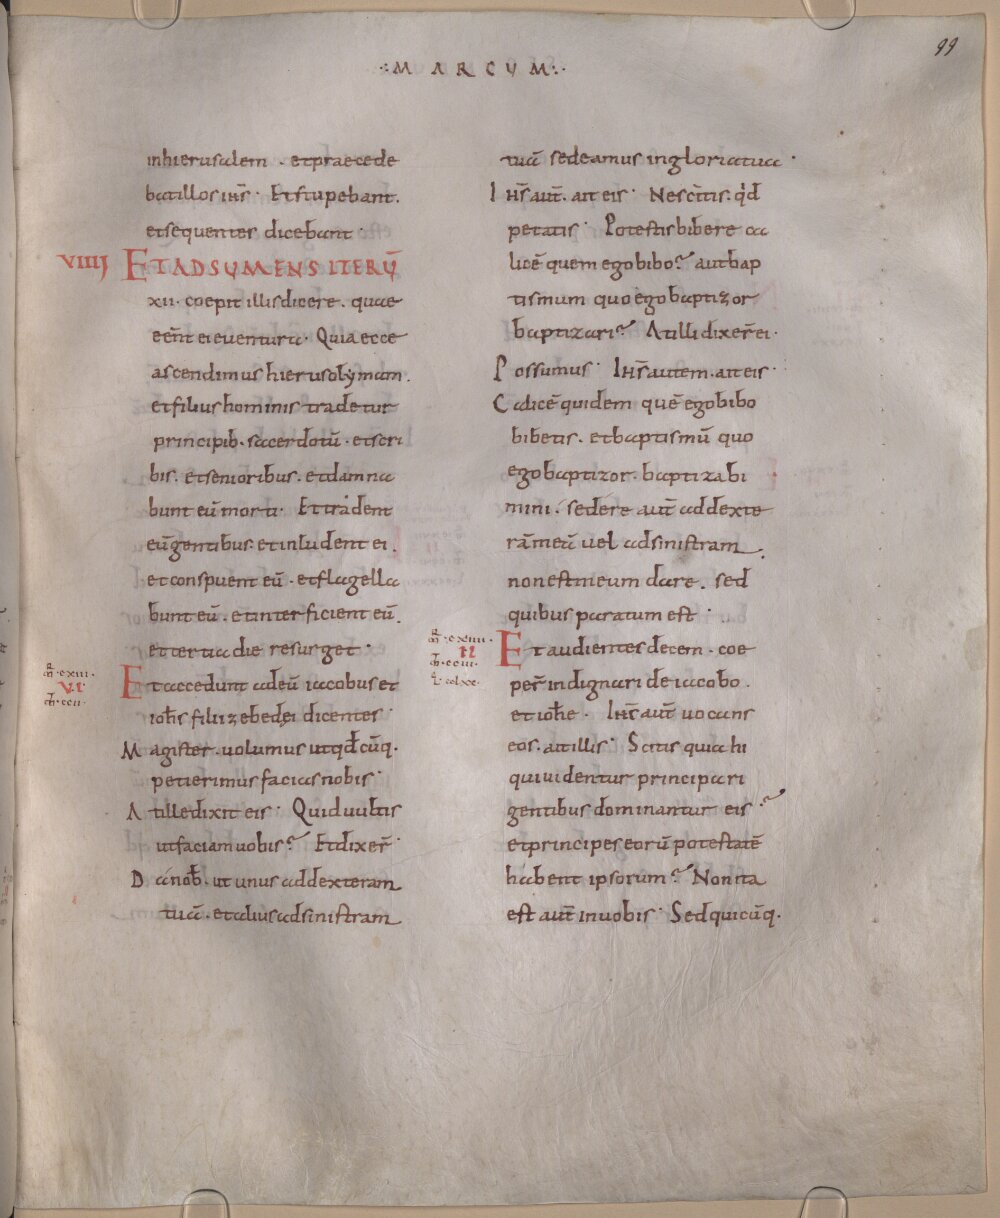 99
·:MARCUM:·
inhierusalem . etpraecede
batillos ihs̄· Etstupebant.
etsequentes dicebant·
VIIIJ ETADSUMENS ITERŪ
xii· coepit illisdicere. quae
eēnt eieventura· Quia ecce
ascendimus hierusolymam.
etfilius hominis tradetur
principib· sacerdotū· etscri
bis. etsenioribus. etdamna
bunt eū morti· Et tradent
eū gentibus· etinludent ei.
etconspuent eū· etflagella
bunt eū. etinterficient eū.
ettertia die resurget·
m̄r·cxiii·
VI·
m̄t·ccii·
Etaccedunt adeū iacobus et
ioh̄s filii zebedęi dicentes·
Magister· volumus utqđcūq·
petierimus facias nobis·
Atilledixit eis· Quidvultis
utfaciam vobis? Etdixer̄·
Da nob̄· ut unus addexteram
tuā· etalius adsinistram
tuā sedeamus ingloriatua·
Ihs̄ aut̄. ait eis· Nescitis. qd̄
petatis· Potestis bibere ca
licē quem egobibo? autbap
tismum quo ego baptizor
baptizari? Atilli dixer̄ ei·
Possumus· Ihs̄ autem. ait eis·
Calicē quidem quē egobibo
bibetis. etbaptismū quo
egobaptizor. baptizabi
mini. sedere aut̄ addexte
rā meā vel adsinistram
nonest meum dare. sed
quibus paratum est·
m̄r·cxiiii·
II
m̄t·cciii·
l·cclxx·
Etaudientes decem· coe
per̄ indignari deiacobo.
et ioh̄e· Ihs̄ aut̄ vocans
eos. aitillis· Scitis quia hi
qui videntur principari
gentibus dominantur eis?
etprincipes eorū potestatē
habent ipsorum? Nonita
est aut̄ invobis· Sedquicūq·